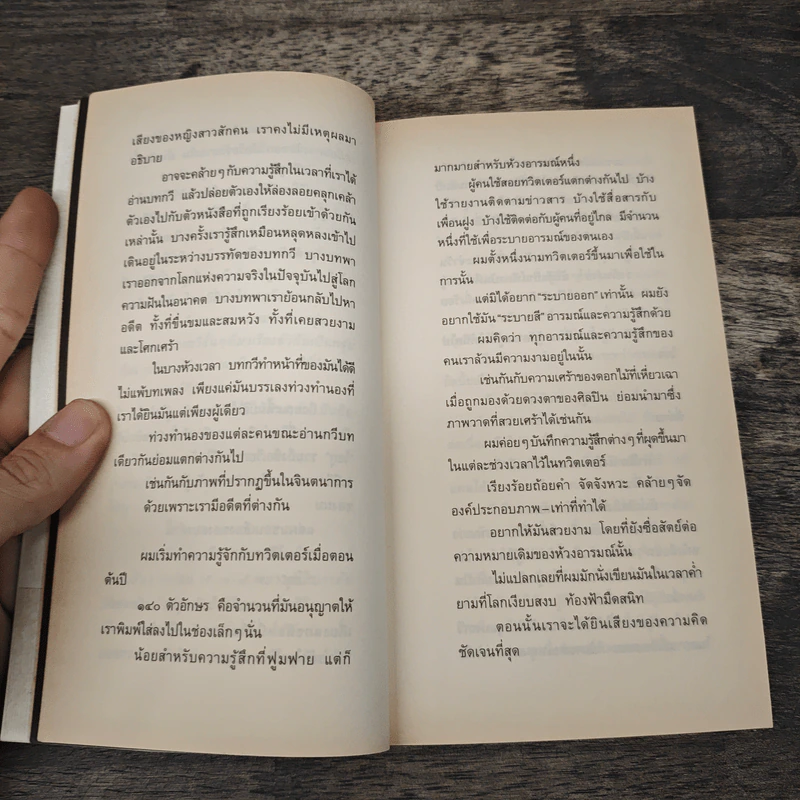 เสียงของหญิงสาวสักคน เราคงไม่มีเหตุผลมา
อธิบาย
อาจจะคล้ายๆ กับความรู้สึกในเวลาที่เราได้
อ่านบทกวี แล้วปล่อยตัวเองให้ล่องลอยคลุกเคล้า
ตัวเองไปกับตัวหนังสือที่ถูกเรียงร้อยเข้าด้วยกัน
เหล่านั้น บางครั้งเรารู้สึกเหมือนหลุดหลงเข้าไป
เดินอยู่ในระหว่างบรรทัดของบทกวี บางบทพา
เราออกจากโลกแห่งความจริงในปัจจุบันไปสู่โลก
ความฝันในอนาคต บางบทพาเราย้อนกลับไปหา
อดีต ทั้งที่ขื่นขมและสมหวัง ทั้งที่เคยสวยงาม
และโศกเศร้า
ในบางห้วงเวลา บทกวีทำหน้าที่ของมันได้ดี
ไม่แพ้บทเพลง เพียงแค่มันบรรเลงท่วงทำนองที่
เราได้ยินมันแต่เพียงผู้เดียว
ท่วงทำนองของแต่ละคนขณะอ่านกวีบท
เดียวกันย่อมแตกต่างกันไป
เช่นกันกับภาพที่ปรากฏขึ้นในจินตนาการ
ด้วยเพราะเรามีอดีตที่ต่างกัน
ผมเริ่มทำความรู้จักกับทวิตเตอร์เมื่อตอน
ต้นปี
๑๔๐ ตัวอักษร คือจำนวนที่มันอนุญาตให้
เราพิมพ์ใส่ลงไปในช่องเล็กๆ นั่น
น้อยสำหรับความรู้สึกที่ฟูมฟาย แต่ก็
มากมายสำหรับห้วงอารมณ์หนึ่ง
ผู้คนใช้สอยทวิตเตอร์แตกต่างกันไป บ้าง
ใช้รายงานติดตามข่าวสาร บ้างใช้สื่อสารกับ
เพื่อนฝูง บ้างใช้ติดต่อกับผู้คนที่อยู่ไกล มีจำนวน
หนึ่งที่ใช้เพื่อระบายอารมณ์ของตนเอง
ผมตั้งหนึ่งนามทวิตเตอร์ขึ้นมาเพื่อใช้ใน
การนั้น
แต่มิได้อยาก “ระบายออก” เท่านั้น ผมยัง
อยากใช้มัน “ระบายสี” อารมณ์และความรู้สึกด้วย
ผมคิดว่า ทุกอารมณ์และความรู้สึกของ
คนเราล้วนมีความงามอยู่ในนั้น
เช่นกันกับความเศร้าของดอกไม้ที่เหี่ยวเฉา
เมื่อถูกมองด้วยดวงตาของศิลปิน ย่อมนำมาซึ่ง
ภาพวาดที่สวยเศร้าได้เช่นกัน
ผมค่อยๆ บันทึกความรู้สึกต่างๆ ที่ผุดขึ้นมา
ในแต่ละช่วงเวลาไว้ในทวิตเตอร์
เรียงร้อยถ้อยคำ จัดจังหวะ คล้ายๆ จัด
องค์ประกอบภาพ – เท่าที่ทำได้
อยากให้มันสวยงาม โดยที่ยังซื่อสัตย์ต่อ
ความหมายเดิมของห้วงอารมณ์นั้น
ไม่แปลกเลยที่ผมมักนั่งเขียนมันในเวลาค่ำ
ยามที่โลกเงียบสงบ ท้องฟ้ามืดสนิท
ตอนนั้นเราจะได้ยินเสียงของความคิด
ชัดเจนที่สุด